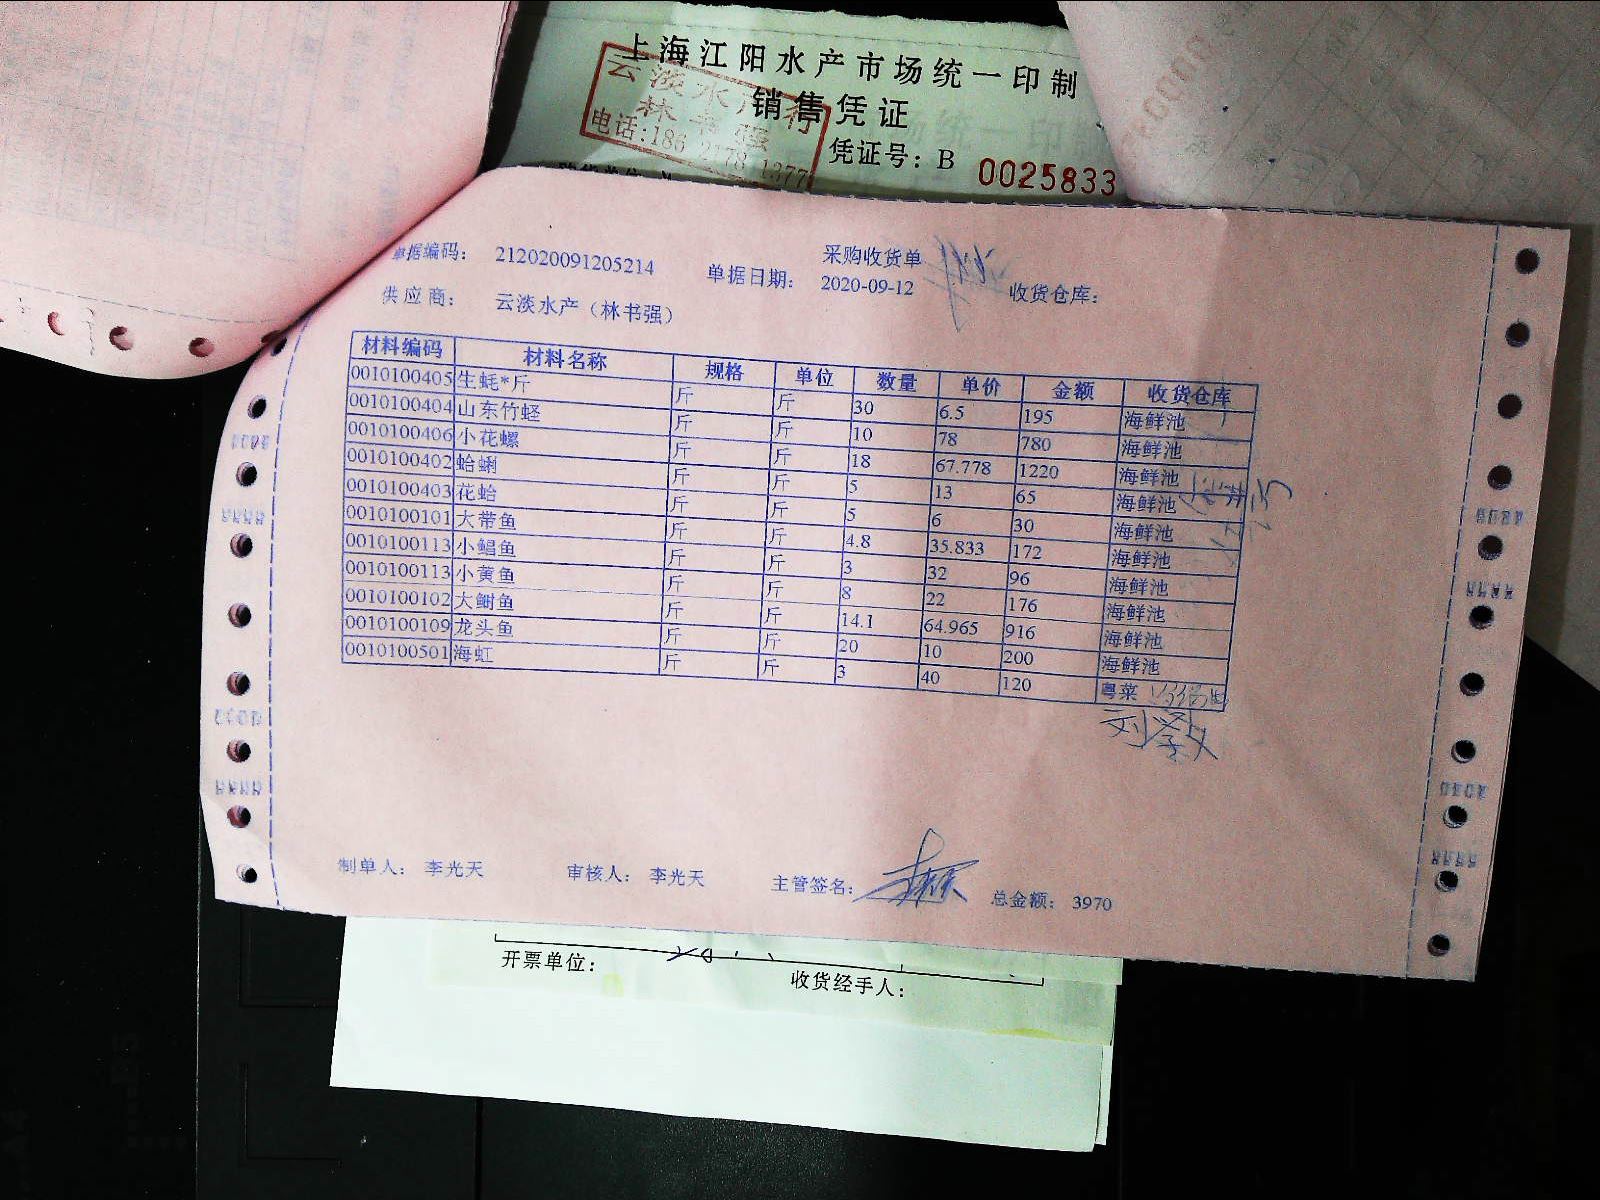 上海江阳水产市场统一印制
销售凭证
云淡水产行
林书强
电话:186 2178 1377
凭证号: B 0025833
采购收货单
单据编码: 212020091205214 单据日期: 2020-09-12 收货仓库:
供应商: 云淡水产(林书强)
材料编码 材料名称 规格 单位 数量 单价 金额 收货仓库
0010100405 生蚝*斤 斤 斤 30 6.5 195 海鲜池
0010100404 山东竹蛏 斤 斤 10 78 780 海鲜池
0010100406 小花螺 斤 斤 18 67.778 1220 海鲜池
0010100402 蛤蜊 斤 斤 5 13 65 海鲜池
0010100403 花蛤 斤 斤 5 6 30 海鲜池
0010100101 大带鱼 斤 斤 4.8 35.833 172 海鲜池
0010100113 小鲳鱼 斤 斤 3 32 96 海鲜池
0010100113 小黄鱼 斤 斤 8 22 176 海鲜池
0010100102 大鲥鱼 斤 斤 14.1 64.965 916 海鲜池
0010100109 龙头鱼 斤 斤 20 10 200 海鲜池
0010100501 海虹 斤 斤 3 40 120 粤菜
制单人: 李光天 审核人: 李光天 主管签名: 总金额: 3970
开票单位: 收货经手人: